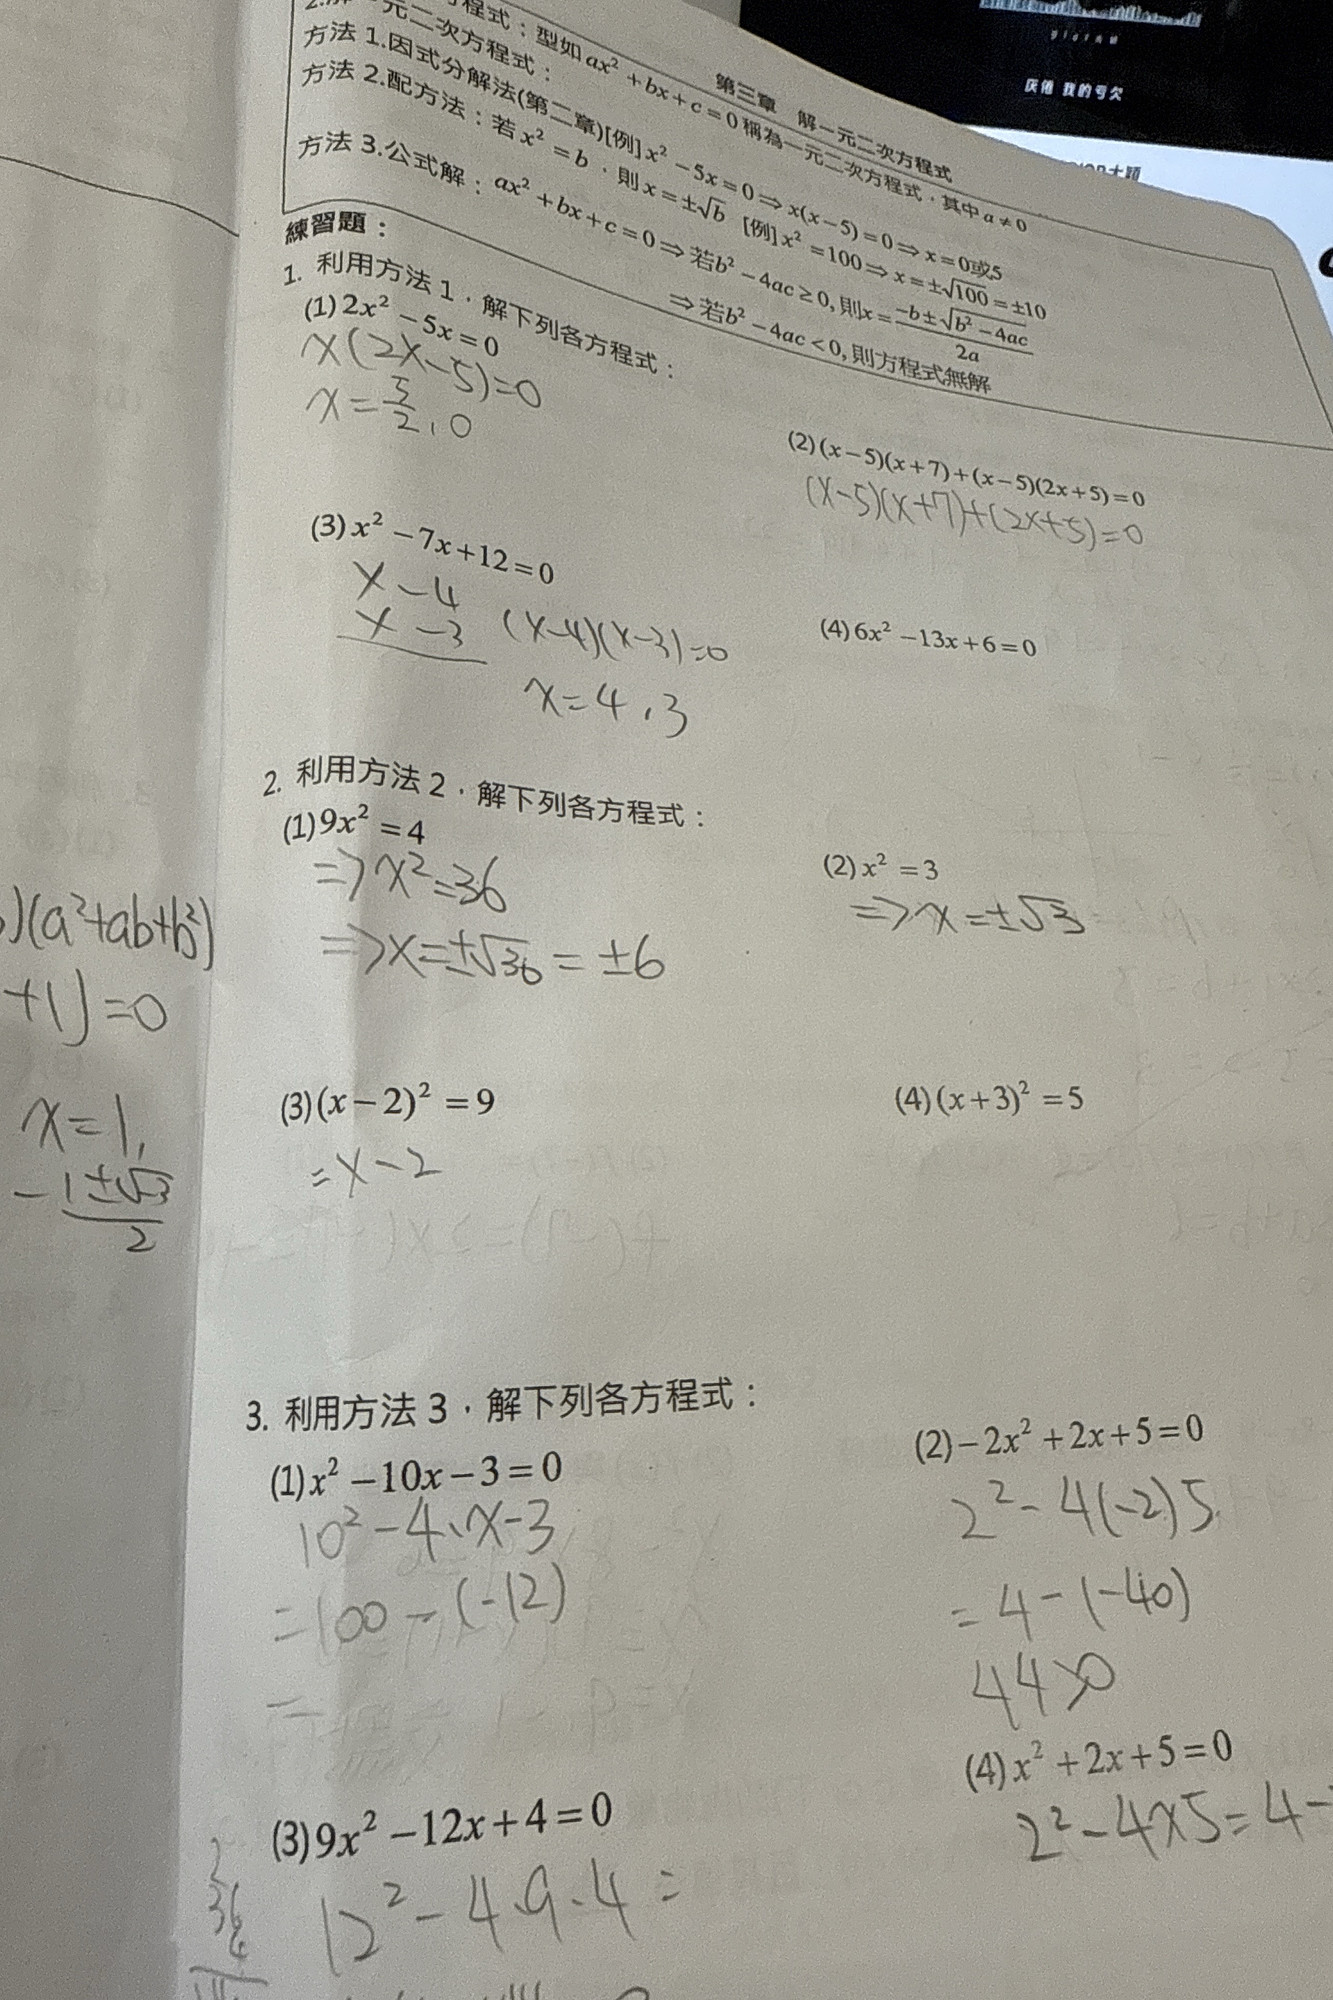 第三章 解一元二次方程式
程式：型如 ax² + bx + c = 0 稱為一元二次方程式，其中 a ≠ 0
元二次方程式：
方法 1.因式分解法(第二章)[例] x² − 5x = 0 ⇒ x(x − 5) = 0 ⇒ x = 0或5
方法 2.配方法：若 x² = b，則 x = ±√b [例] x² = 100 ⇒ x = ±√100 = ±10
方法 3.公式解：ax² + bx + c = 0 ⇒ 若b² − 4ac ≥ 0, 則x = (−b ± √(b² − 4ac))/(2a)
⇒ 若b² − 4ac < 0, 則方程式無解
練習題：
1. 利用方法 1，解下列各方程式：
(1) 2x² − 5x = 0
x(2x−5)=0
x = 5/2, 0
(2) (x − 5)(x + 7) + (x − 5)(2x + 5) = 0
(x−5)(x+7)+(2x+5)=0
(3) x² − 7x + 12 = 0
x −4
x −3 (x−4)(x−3)=0
x = 4, 3
(4) 6x² − 13x + 6 = 0
2. 利用方法 2，解下列各方程式：
(1) 9x² = 4
=> x² = 36
=> x = ±√36 = ±6
(2) x² = 3
=> x = ±√3
(3) (x − 2)² = 9
= x − 2
(4) (x + 3)² = 5
3. 利用方法 3，解下列各方程式：
(1) x² − 10x − 3 = 0
10² − 4·x−3
= 100 − (−12)
=
(2) − 2x² + 2x + 5 = 0
2² − 4(−2)5
= 4 − (−40)
44>0
(3) 9x² − 12x + 4 = 0
12² − 4·9·4 =
(4) x² + 2x + 5 = 0
2² − 4×5 = 4 −
36
4
)(a²+ab+b²)
+1)=0
x = 1,
−1±√3
2
厌倦 我的亏欠